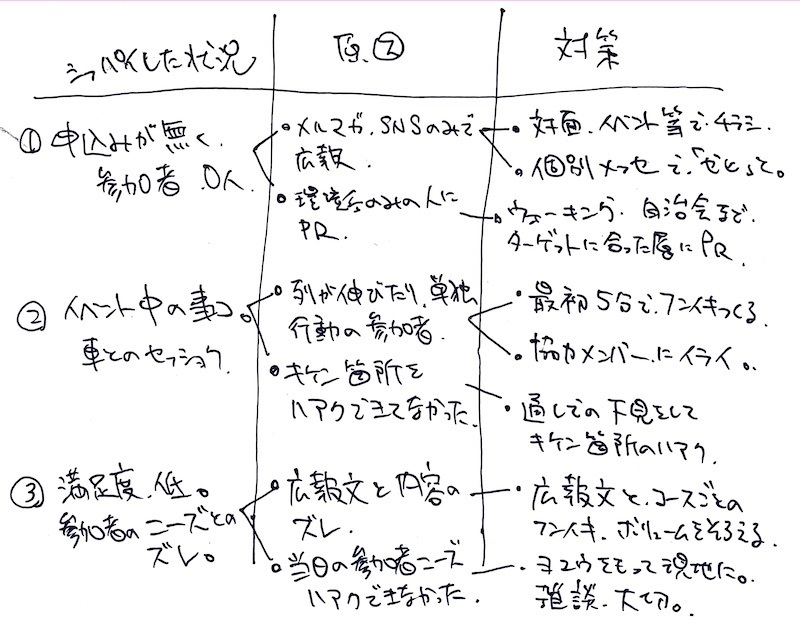 シッパイした状況
原因
対策
① 申込みが無く、
参加者 0人.
・メルマガ、SNSのみで
広報.
・環境系のみの人に
PR.
・対面、イベント等で、チラシ.
・個別メッセで、「ぜひ」って。
・ウォーキング、自治会まで、
ターゲットに合った層にPR.
② イベント中の事コ。
車とのセッショク.
・列が伸びたり、単独
行動の参加者.
・キケン箇所を
ハアクできてなかった.
・最初5分で、フンイキつくる.
・協力メンバーにイライ。
・通しでの下見をして
キケン箇所のハアク.
③ 満足度、低。
参加者のニーズとの
ズレ。
・広報文と内容の
ズレ.
・当日の参加者ニーズ
ハアクできなかった.
・広報文と、コースごとの
フンイキ、ボリュームをそろえる.
・ヨユウをもって現地に。
雑談、大切。